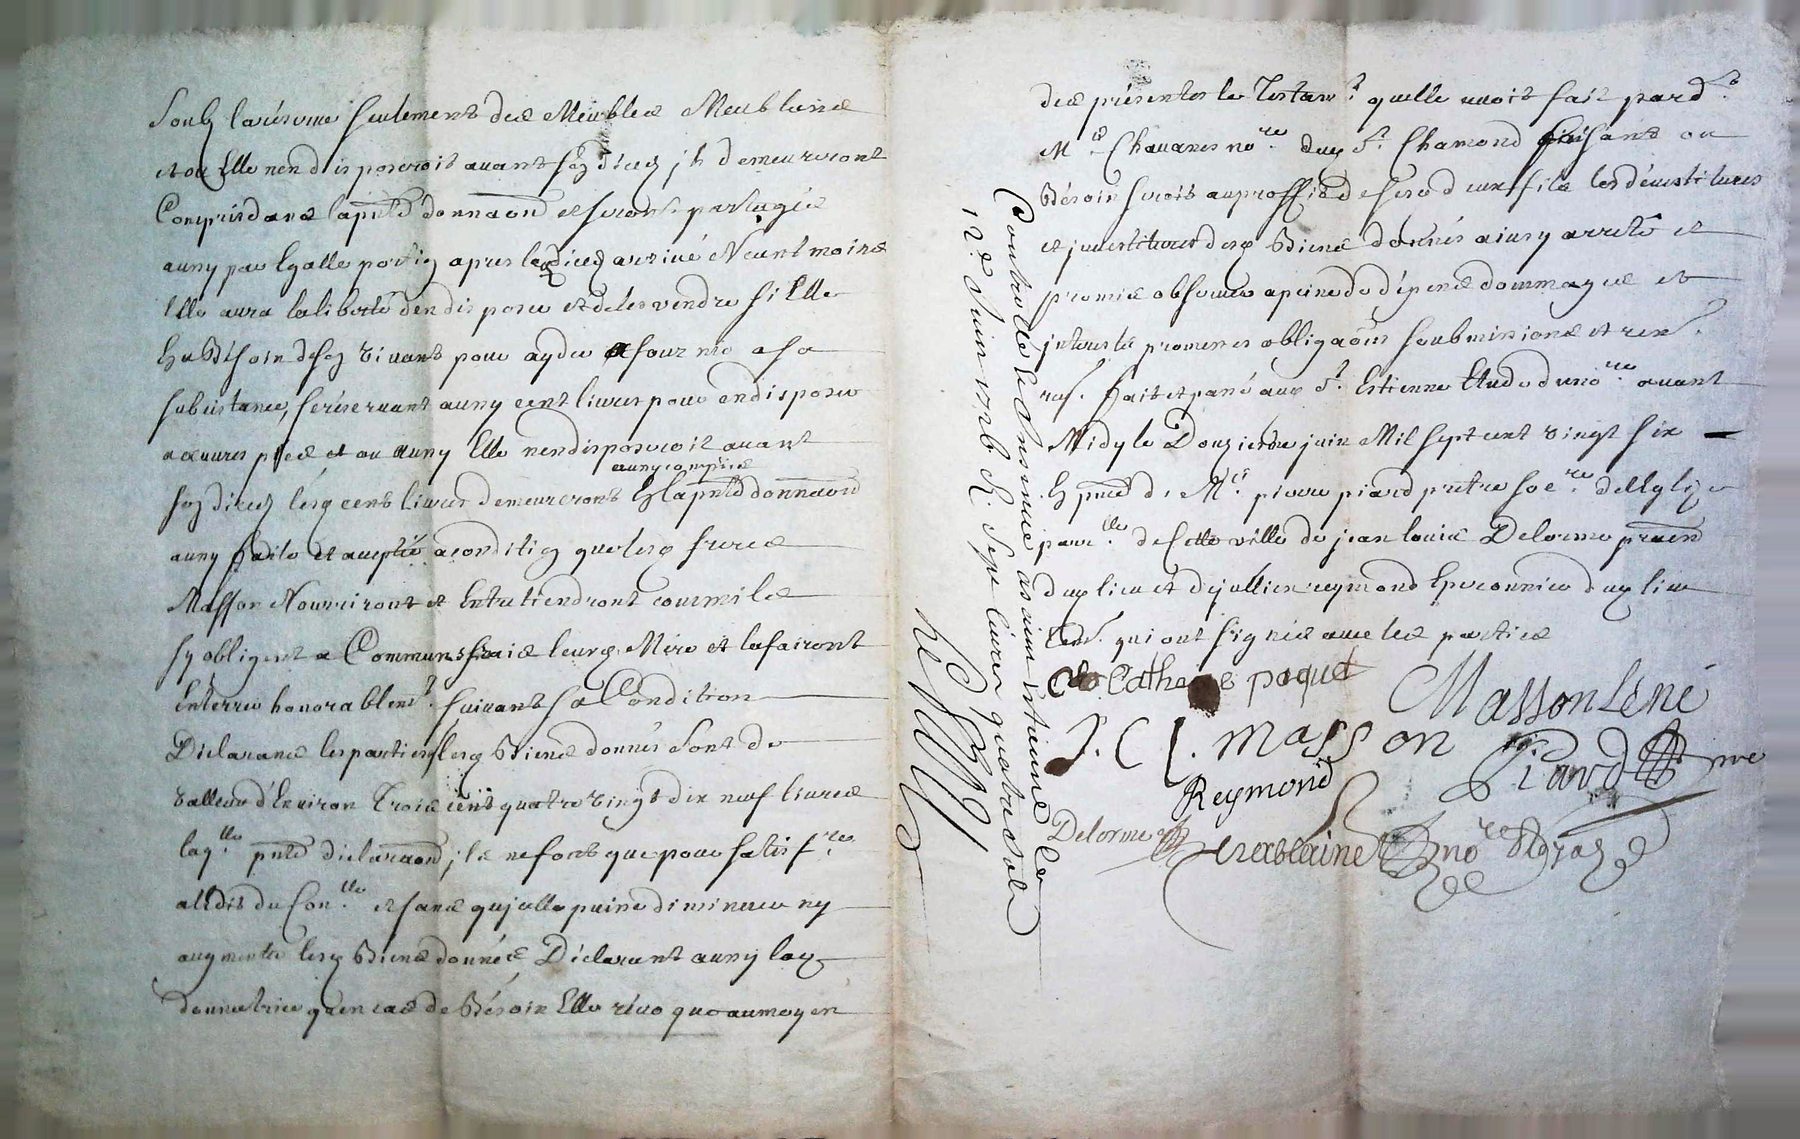 Soub la réserve seulement des Meubles Meublans
et ou Elle nen disposeroit avant son déces jls demeureront
Compris dans la pnte donnaon et seront partagés
aussy par Egalle portion apres le déces arrivé Neantmoins
Elle aura la liberté den disposer et de les vendre si Elle
En a Bésoin de son vivant pour ayder a fournir a sa
subsistance, se réservant aussy cent livres pour en disposer
a oeuvres pies et ou aussy Elle nen disposeroit avant
aussy compris
son déces lesq cent livres demeureront En la pnte donnaon
aussy faite et acceptée a condition que lesq freres
Masson Nourriront et Entretiendront comme ils
sy obligent a Communs frais leurq Mere et la fairont
Enterrer honorablemt suivant sa Condition
Déclarans les parties lesq Biens donnés sont de
valleur d'Environ Trois cent quatre vingt dix neuf livres
laqlle pnte déclaraon jls ne font que pour satisfre
a lédit du Conlle et sans qujelle puisse diminuer ny
augmenter lesq Biens donnés Déclarant aussy laq
donnatrice quen cas de Bésoin Elle révoque au moyen
des présentes le Testamt quelle avoit fait pard
Me Chavanes nore dud St Chamond faisant au
Bésoin seroit au proffit de sesd deux fils les dévestitures
et jnvestitures desq Biens donnés ainsy arreté et
promis observer a peine de dépens dommages et
jnterests promesses obligaons soubmissions et ren.
nes. fait et passé aud St Estienne Etude du nore avant
Midy le Douzieme juin Mil sept cent vingt six
En pnce de Me pierre piard pretre soere de l'Eglize
parlle de cette ville de jean louis Delorme praen
dud lieu et de jullien reymond Eperonnier dud lieu
tesm. qui ont signés avec les parties
Catherine paquet
Masson léné
J. C L. masson
Piard pre
Reymond
Delorme
nore Royal
Controllé le et Insinué a St Etienne le
12e Juin 1726 R. sept livres quatre sols